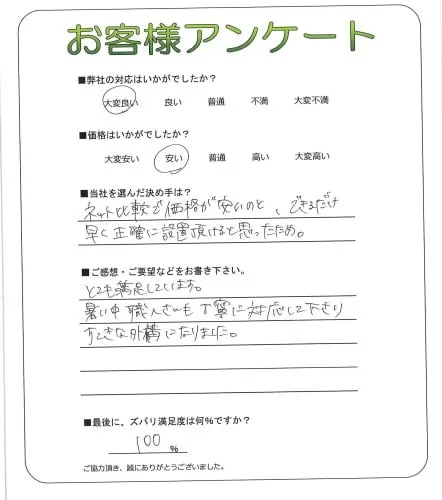 お客様アンケート
■弊社の対応はいかがでしたか?
大変良い 良い 普通 不満 大変不満
■価格はいかがでしたか?
大変安い 安い 普通 高い 大変高い
■当社を選んだ決め手は?
ネット比較で価格が安いのと、できるだけ
早く正確に設置頂けると思ったため。
■ご感想・ご要望などをお書き下さい。
とても満足しています。
暑い中職人さんも丁寧に対応して下さり
すてきな外構になりました。
■最後に、ズバリ満足度は何%ですか?
100 %
ご協力頂き、誠にありがとうございました。